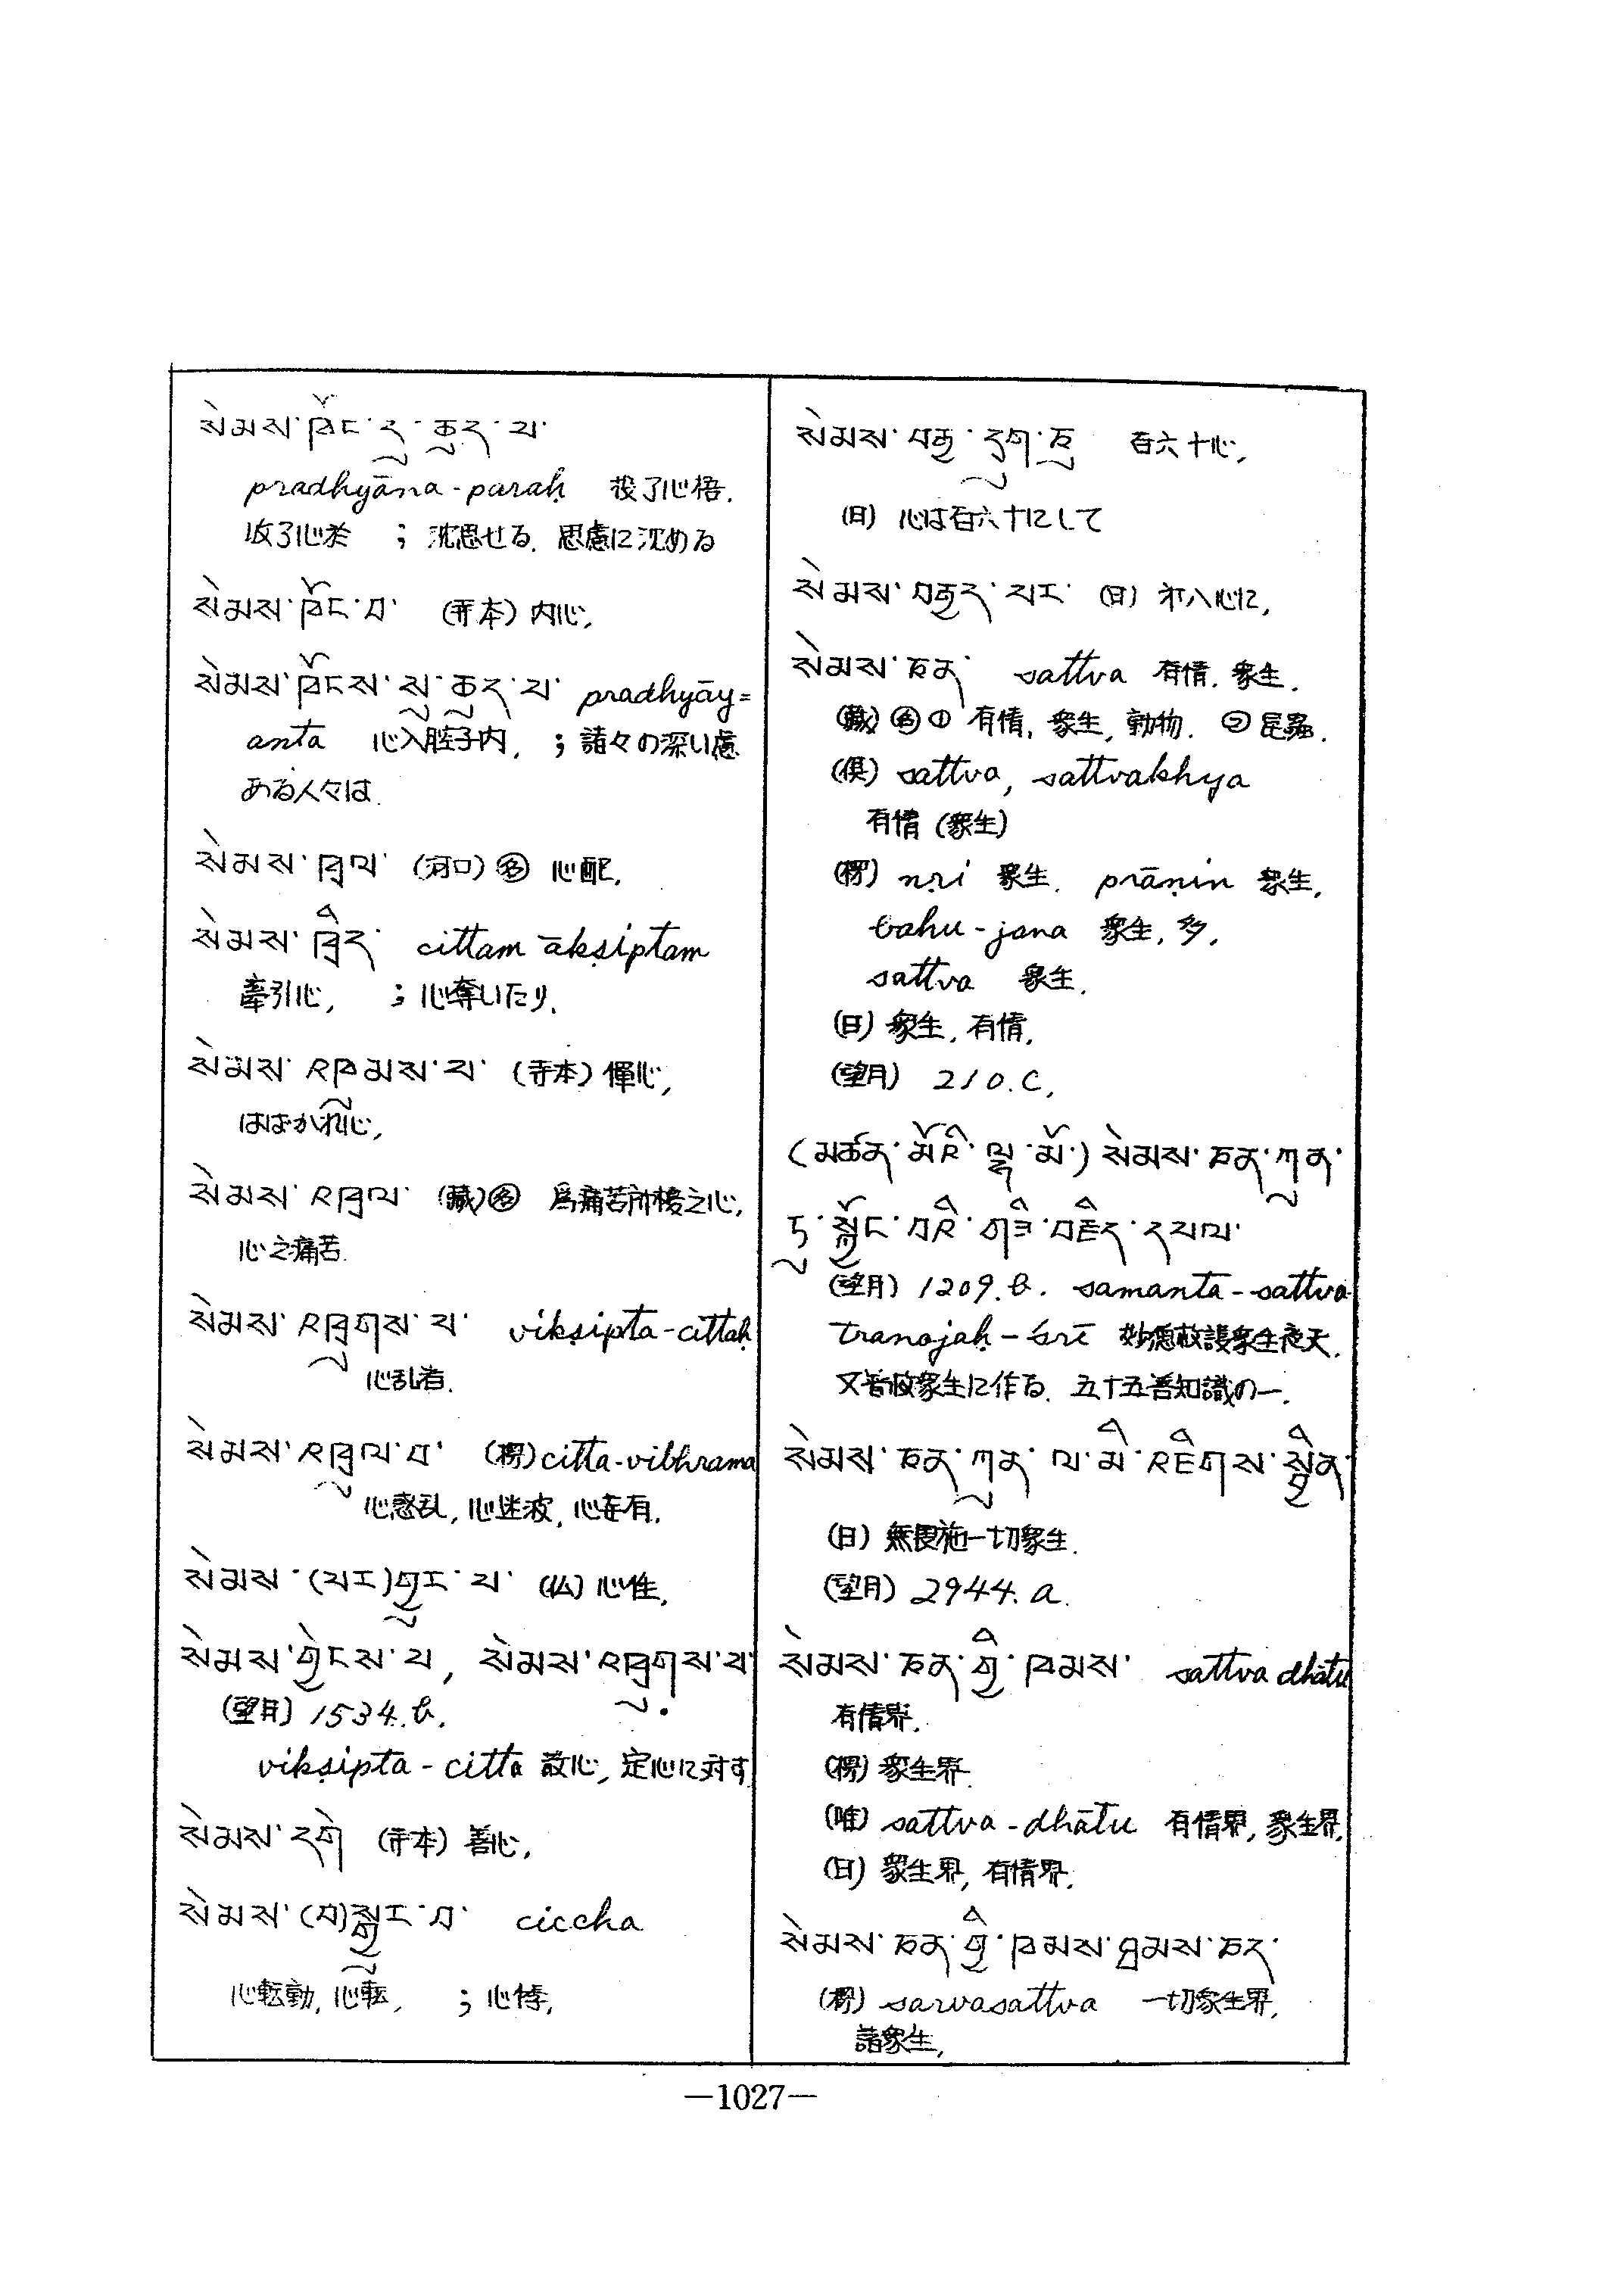 སེམས་ཁོང་དུ་ཆུད་པ་
pradhyāna-paraḥ 投了心悟.
故了心於 ; 沈思せる. 思慮に沈める
སེམས་ཁོང་བ་ (寺本) 内心,
སེམས་ཁོངས་སུ་ཆུད་པ་ pradhyāy=
anta 心入腔子内, ; 諸々の深い慮
ある人々は.
སེམས་ཁྲལ་ (河口) ㊔ 心配,
སེམས་ཁྲིད་ cittam ākṣiptam
牽引心, ; 心奪いたり.
སེམས་འཁུམས་པ་ (寺本) 憚心,
はばかれ心,
སེམས་འཁྲལ་ (藏) ㊔ 爲痛苦所擾之心,
心之痛苦.
སེམས་འཁྲུགས་པ་ vikṣipta-cittaḥ
心乱者.
སེམས་འཁྲུལ་བ་ (楞) citta-vibhrama
心惑乱, 心迷波, 心妄有.
སེམས་(པར)གྱུར་པ་ (仏) 心性,
སེམས་གྱེངས་པ, སེམས་འཁྲུགས་པ་
(望月) 1534.b.
vikṣipta-citta 散心, 定心に対す
སེམས་དགེ (寺本) 善心,
སེམས་(བ)སྒྱུར་བ་ ciccha
心転動, 心転, ; 心悸,
སེམས་བརྒྱ་དྲུག་ཅུ 百六十心,
(日) 心は百六十にして
སེམས་བརྒྱད་པར་ (日) 第八心に,
སེམས་ཅན་ sattva 有情. 衆生.
(藏) ㊔ ① 有情, 衆生, 動物. ② 昆蟲.
(倶) sattva, sattvakhya
有情 (衆生)
(楞) nṛi 衆生. prāṇin 衆生,
bahu-jana 衆生, 多,
sattva 衆生.
(日) 衆生, 有情,
(望月) 210.C,
(མཚན་མོའི་ལྷ་མོ་) སེམས་ཅན་ཀུན་
ཏུ་སྐྱོང་བའི་གཟི་བརྗིད་དཔལ་
(望月) 1209.b. samanta-sattva
tranojaḥ-śrī 妙徳救護衆生夜天.
又普救衆生に作る. 五十五善知識の一.
སེམས་ཅན་ཀུན་ལ་མི་འཇིགས་སྦྱིན་
(日) 無畏施一切衆生.
(望月) 2944.a.
སེམས་ཅན་གྱི་ཁམས་ sattva dhātu
有情界.
(楞) 衆生界.
(唯) sattva-dhātu 有情界, 衆生界,
(日) 衆生界, 有情界.
སེམས་ཅན་གྱི་ཁམས་ཐམས་ཅད་
(楞) sarvasattva 一切衆生界,
諸衆生,
—1027—